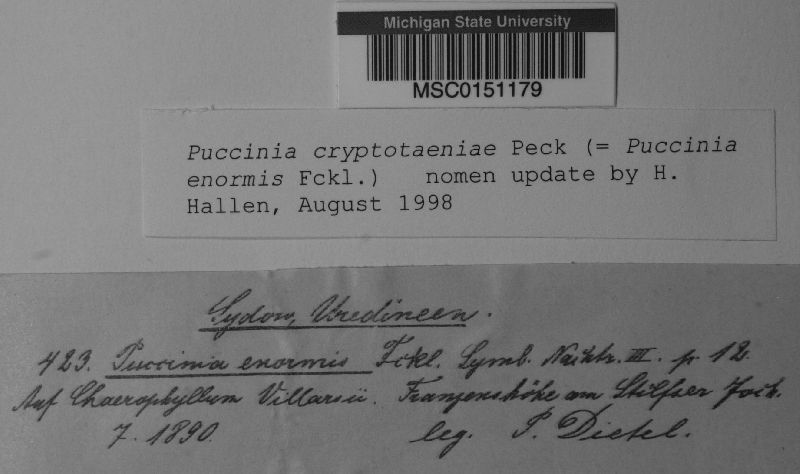 Michigan State University
MSC0151179
Puccinia cryptotaeniae Peck (= Puccinia
enormis Fckl.) nomen update by H.
Hallen, August 1998
Sydow, Uredineen.
423. Puccinia enormis Fckl. Symb. Nachtr. III. p. 12.
Auf Chaerophyllum Villarsii. Franzenshöhe am Stilfser Joch.
7. 1890. leg. P. Dietel.